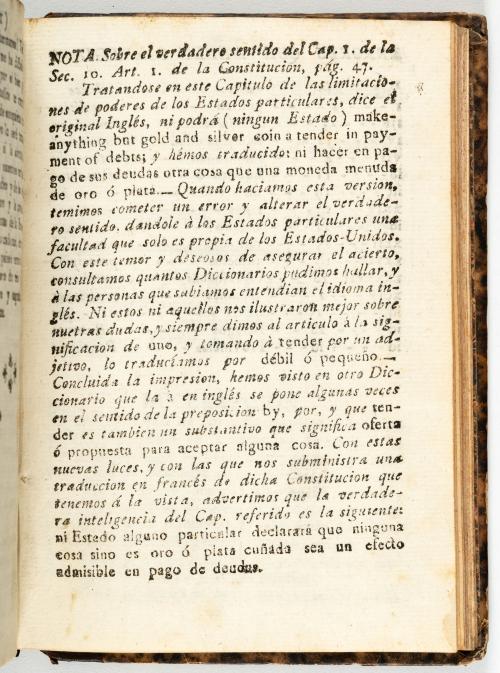 NOTA. Sobre el verdadero sentido del Cap. 1. de la
Sec. 10. Art. 1. de la Constitucion, pág. 47.
Tratandose en este Capitulo de las limitacio-
nes de poderes de los Estados particulares, dice el
original Inglés, ni podrá (ningun Estado) make-
anything but gold and silver coin a tender in pay-
ment of debts; y hémos traducido: ni hacer en pa-
go de sus deudas otra cosa que una moneda menuda
de oro ó plata.— Quando haciamos esta version,
temimos cometer un error y alterar el verdade-
ro sentido, dandole à los Estados particulares una
facultad que solo es propia de los Estados-Unidos.
Con este temor y deseosos de asegurar el acierto,
consultamos quantos Diccionarios pudimos hallar, y
à las personas que subiamos entendian el idioma in-
glés. Ni estos ni aquellos nos ilustraron mejor sobre
nuetras dudas, y siempre dimos al articulo à la sig-
nificacion de uno, y tomando à tender por un ad-
jetivo, lo traduciamos por débil ó pequeño.—
Concluida la impresion, hemos visto en otro Dic-
cionario que la à en inglés se pone algunas veces
en el sentido de la preposicion by, por, y que ten-
der es tambien un substantivo que significa oferta
ó propuesta para aceptar alguna cosa. Con estas
nuevas luces, y con las que nos subministra una
traduccion en francés de dicha Constitucion que
tenemos á la vista, advertimos que la verdade-
ra inteligencia del Cap. referido es la siguiente:
ni Estado alguno particular declarará que ninguna
cosa sino es oro ó plata cuñada sea un efecto
admisible en pago de deudas.